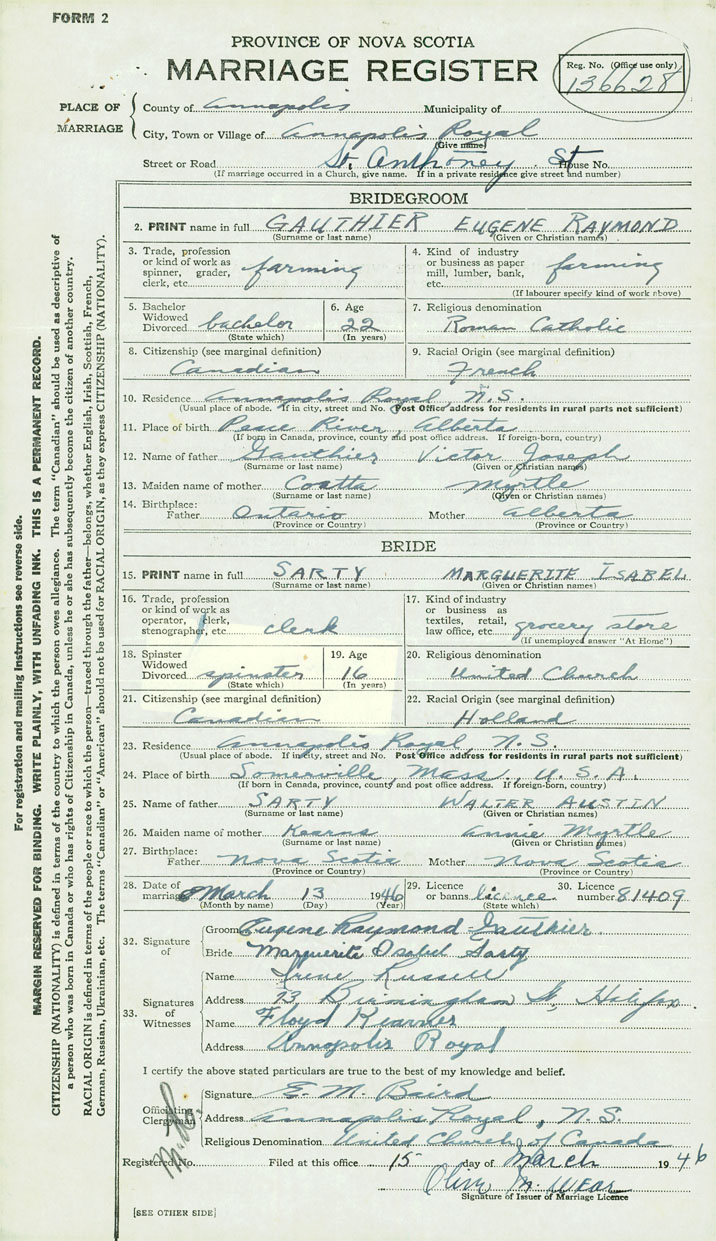 FORM 2
PROVINCE OF NOVA SCOTIA
MARRIAGE REGISTER
Reg. No. (Office use only)
136628
PLACE OF MARRIAGE
County of Annapolis Municipality of
City, Town or Village of Annapolis Royal
(Give name)
Street or Road St. Anthoney St House No.
(If marriage occurred in a Church, give name. If in a private residence give street and number)
BRIDEGROOM
2. PRINT name in full GAUTHIER EUGENE RAYMOND
(Surname or last name) (Given or Christian names)
3. Trade, profession or kind of work as spinner, grader, clerk, etc. farming
4. Kind of industry or business as paper mill, lumber, bank, etc. farming
(If labourer specify kind of work above)
5. Bachelor Widowed Divorced bachelor
(State which)
6. Age 22
(In years)
7. Religious denomination
Roman Catholic
8. Citizenship (see marginal definition)
Canadian
9. Racial Origin (see marginal definition)
French
10. Residence Annapolis Royal, N.S.
(Usual place of abode. If in city, street and No. Post Office address for residents in rural parts not sufficient)
11. Place of birth Peace River, Alberta
(If born in Canada, province, county and post office address. If foreign-born, country)
12. Name of father Gauthier Victor Joseph
(Surname or last name) (Given or Christian names)
13. Maiden name of mother Coatta Myrtle
(Surname or last name) (Given or Christian names)
14. Birthplace: Father Ontario Mother Alberta
(Province or Country) (Province or Country)
BRIDE
15. PRINT name in full SARTY MARGUERITE ISABEL
(Surname or last name) (Given or Christian names)
16. Trade, profession or kind of work as operator, clerk, stenographer, etc. clerk
17. Kind of industry or business as textiles, retail, law office, etc. grocery store
(If unemployed answer "At Home")
18. Spinster Widowed Divorced spinster
(State which)
19. Age 16
(In years)
20. Religious denomination
United Church
21. Citizenship (see marginal definition)
Canadian
22. Racial Origin (see marginal definition)
Holland
23. Residence Annapolis Royal, N.S.
(Usual place of abode. If in city, street and No. Post Office address for residents in rural parts not sufficient)
24. Place of birth Somerville, Mass., U.S.A.
(If born in Canada, province, county and post office address. If foreign-born, country)
25. Name of father SARTY WALTER AUSTIN
(Surname or last name) (Given or Christian names)
26. Maiden name of mother Kearns Annie Myrtle
(Surname or last name) (Given or Christian names)
27. Birthplace: Father Nova Scotia Mother Nova Scotia
(Province or Country) (Province or Country)
28. Date of marriage March 13 1946
(Month by name) (Day) (Year)
29. Licence or banns licence
(State which)
30. Licence number 81409
32. Signature of
Groom Eugene Raymond Gauthier
Bride Marguerite Isabel Sarty
33. Signatures of Witnesses
Name Irene Russell
Address 73 Birmingham St, Halifax
Name Floyd
Address Annapolis Royal
I certify the above stated particulars are true to the best of my knowledge and belief.
Officiating Clergyman
Signature E. M. Baird
Address Annapolis Royal, N.S.
Religious Denomination United Church of Canada
Registered No. Filed at this office 15 day of March 1946
M.
Signature of Issuer of Marriage Licence
[SEE OTHER SIDE]
For registration and mailing instructions see reverse side.
MARGIN RESERVED FOR BINDING. WRITE PLAINLY, WITH UNFADING INK. THIS IS A PERMANENT RECORD.
CITIZENSHIP (NATIONALITY) is defined in terms of the country to which the person owes allegiance. The term "Canadian" should be used as descriptive of
a person who was born in Canada or who has rights of Citizenship in Canada, unless he or she has subsequently become the citizen of another country.
RACIAL ORIGIN is defined in terms of the people or race to which the person—traced through the father—belongs, whether English, Irish, Scottish, French,
German, Russian, Ukrainian, etc. The terms "Canadian" or "American" should not be used for RACIAL ORIGIN, as they express CITIZENSHIP (NATIONALITY).